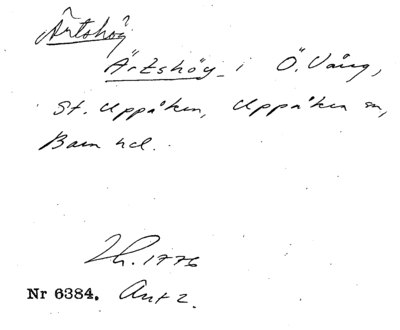 Ärtshög
Ärtshög i Ö. Vång,
St. Uppåkra, Uppåkra sn,
Bara hd.
Lh. 1776
Nr 6384. Ant 2.